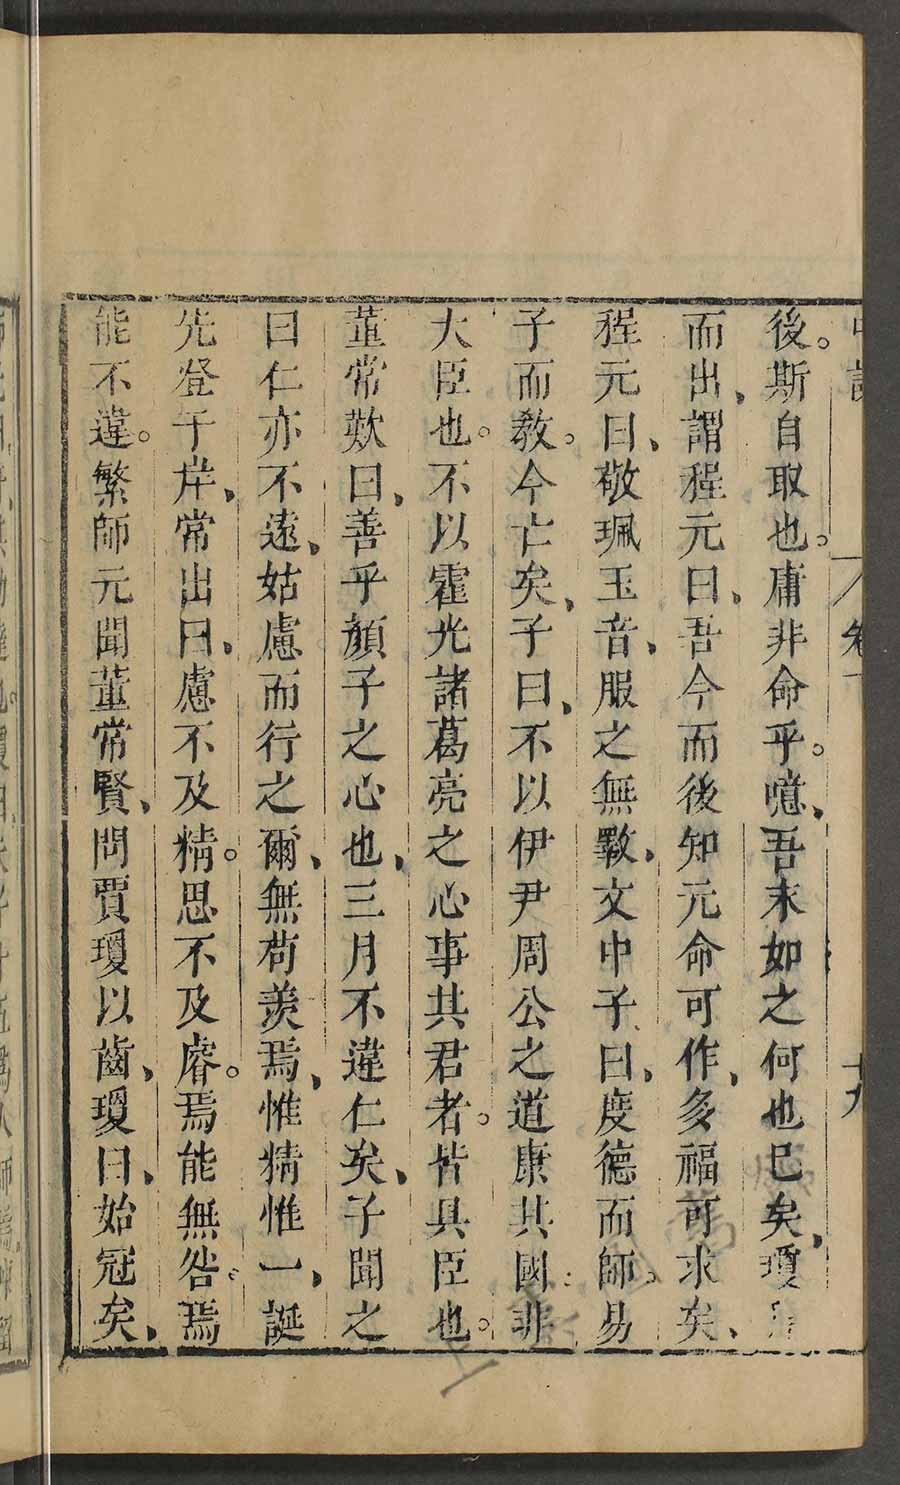 後。斯自取也。庸非命乎。噫、吾未如之何也已矣、瓊
而出、謂程元曰、吾今而後知元命可作、多福可求矣、
程元曰、敬珮玉音、服之無斁、文中子曰、度德而師。易
子而敎。今亡矣、子曰、不以伊尹周公之道康其國、非
大臣也。不以霍光諸葛亮之心事其君者。皆具臣也。
董常歎曰、善乎顔子之心也、三月不違仁矣、子聞之
曰仁亦不遠、姑慮而行之爾、無苟羨焉、惟精惟一、誕
先登于岸、常出曰、慮不及精。思不及睿。焉能無咎。焉
能不違。繁師元聞董常賢、問賈瓊以齒、瓊曰、始冠矣、